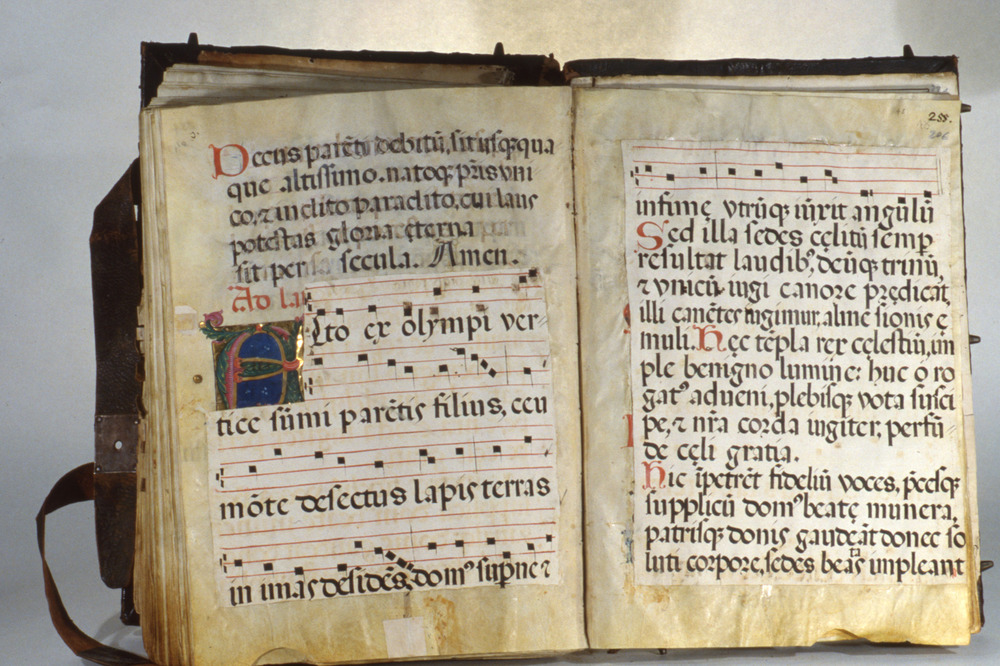 Decus parēti debitū, sit usq; qua
que altissimo. natoq; p̄ris uni
co, ⁊ inclito paraclito, cui laus
potestas gloria ęterna
sit per secula. Amen.
Ad la
Alto ex olympi ver-
tice sūmi parētis filius, ceu
mōte desectus lapis terras
in imas desidēs, domꝰ sup̄ne ⁊
288.
infimę vtrūq; iūxit angulū
Sed illa sedes cęlitū semp
resultat laudibꝰ, deūq; trinū,
⁊ vnicū iugi canore prędicat,
illi canētes iugimur, alme sionis ę
muli. Hęc tēpla rex cęlestiū, im
ple benigno lumine: huc o ro
gatꝰ adueni, plebisq; vota susci
pe, ⁊ nr̄a corda iugiter, perfū
de cęli gratia.
Hic īpetrēt fideliū voces, p̄cesq;
supplicū domꝰ beatę munera,
patrisq; donis gaudeāt donec so
luti corpore, sedes beās impleant